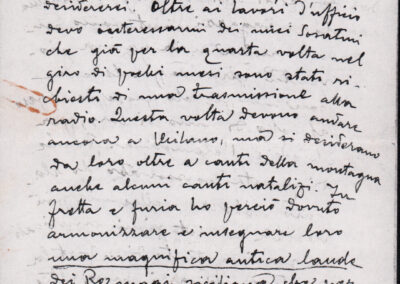 desiderersi. Oltre ai lavori d'ufficio
devo interessarmi dei miei Sosatini
che già per la quarta volta nel
giro di pochi mesi sono stati ri-
chiesti di una trasmissione alla
radio. Questa volta devono andare
ancora a Milano, ma si desiderano
da loro oltre a canti della montagna
anche alcuni canti natalizi. In
fretta e furia ho perciò dovuto
armonizzare e insegnare loro
una magnifica antica laude
dei Re Magi siciliana che